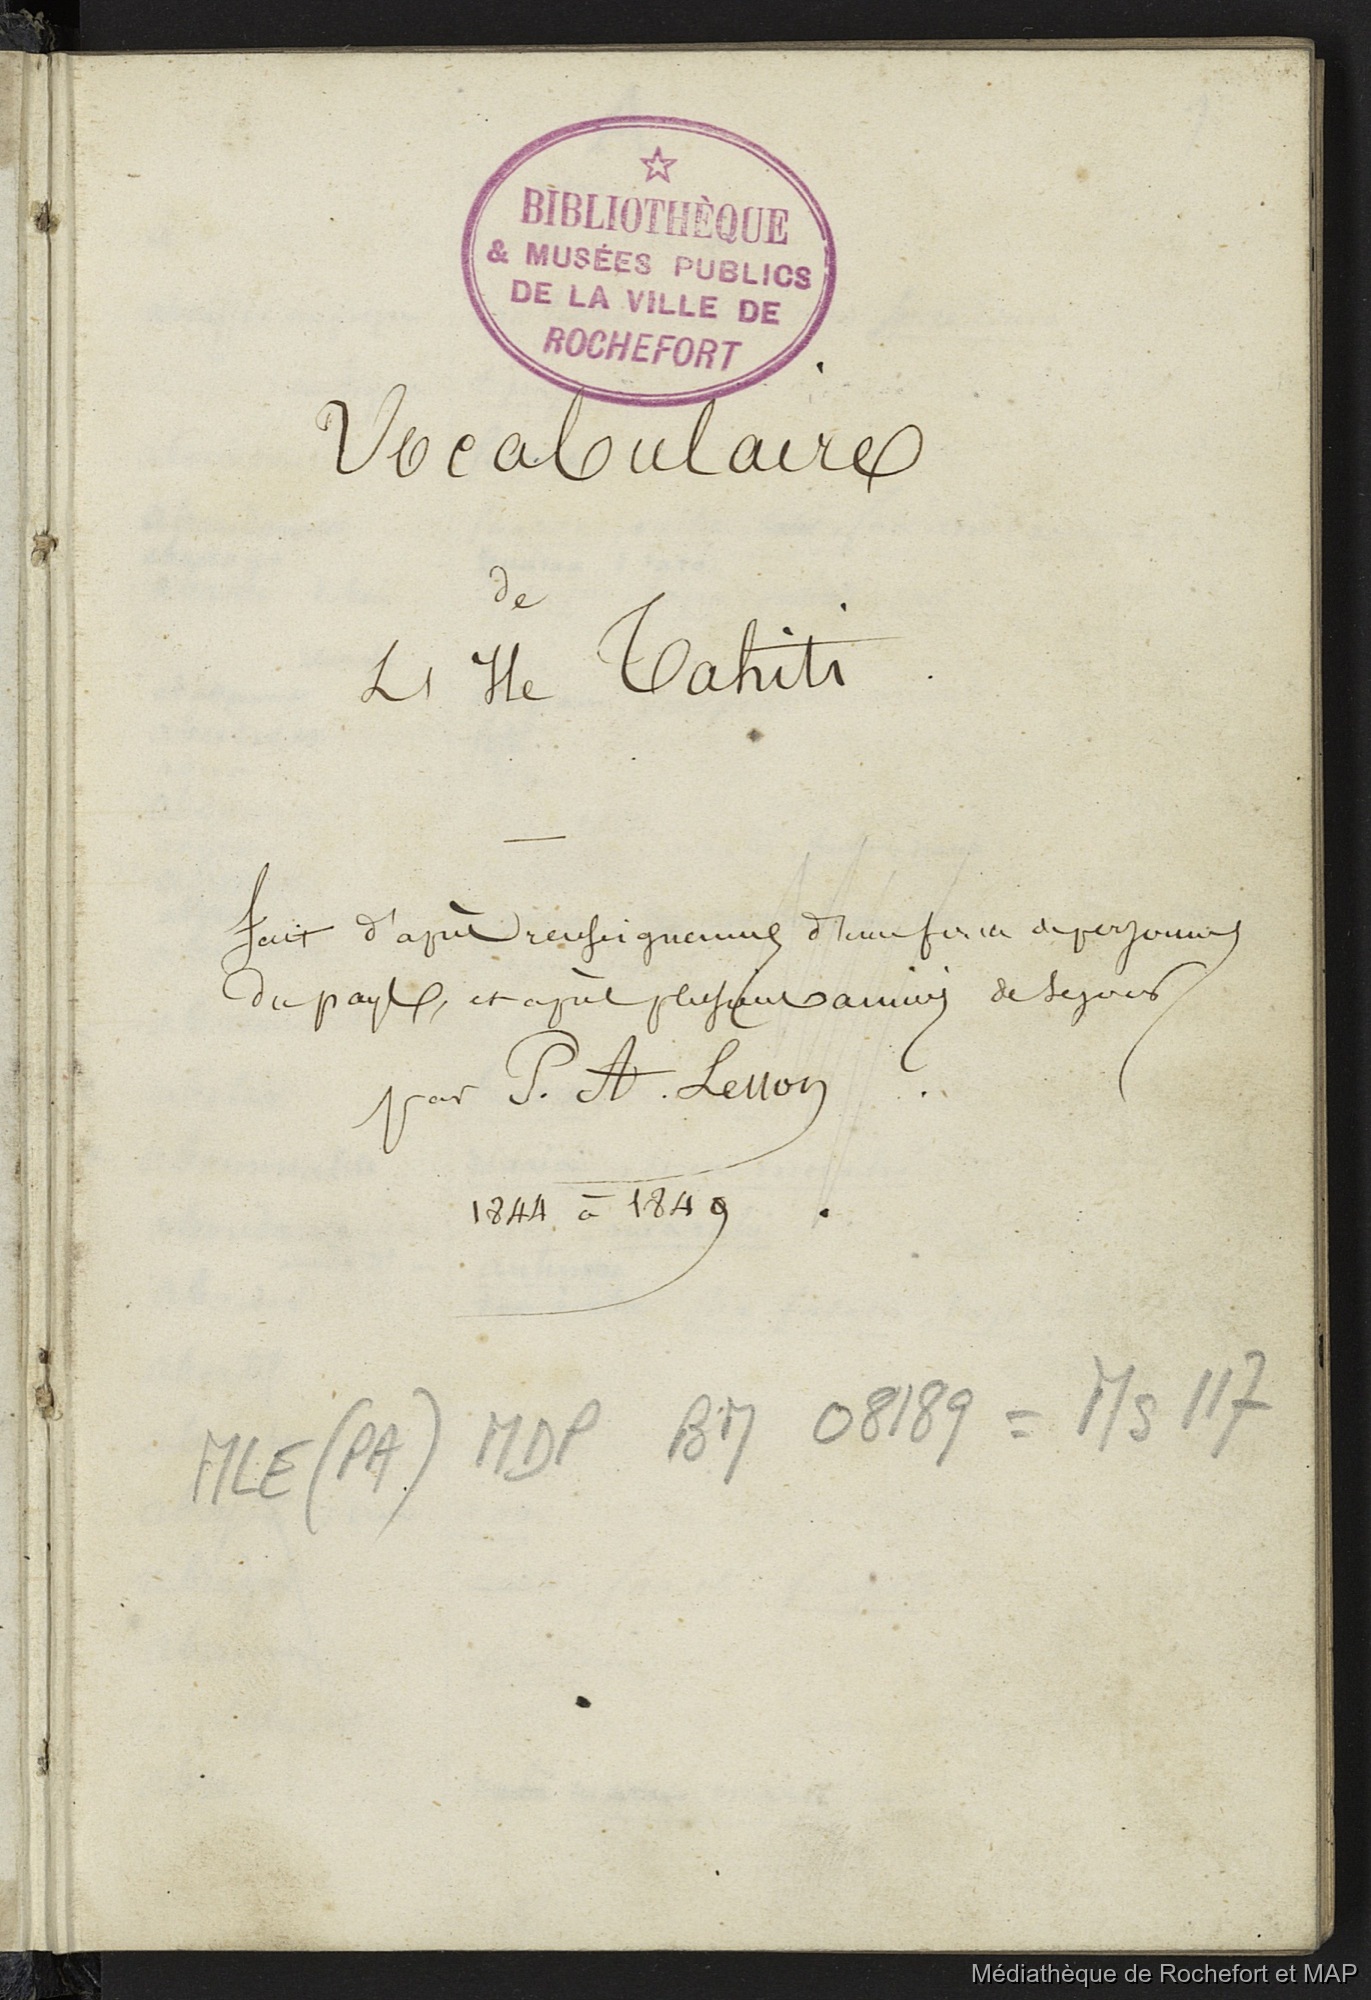 BIBLIOTHÈQUE
& MUSÉES PUBLICS
DE LA VILLE DE
ROCHEFORT
Vocabulaire
de
L' Ile Tahiti.
fait d'après renseignemens de personnes
du pays, et après plusieurs années de séjour
par P. A. Lesson.
1844 à 1849.
MLE (PA) MDP BM 08189 = Ms 117
Médiathèque de Rochefort et MAP